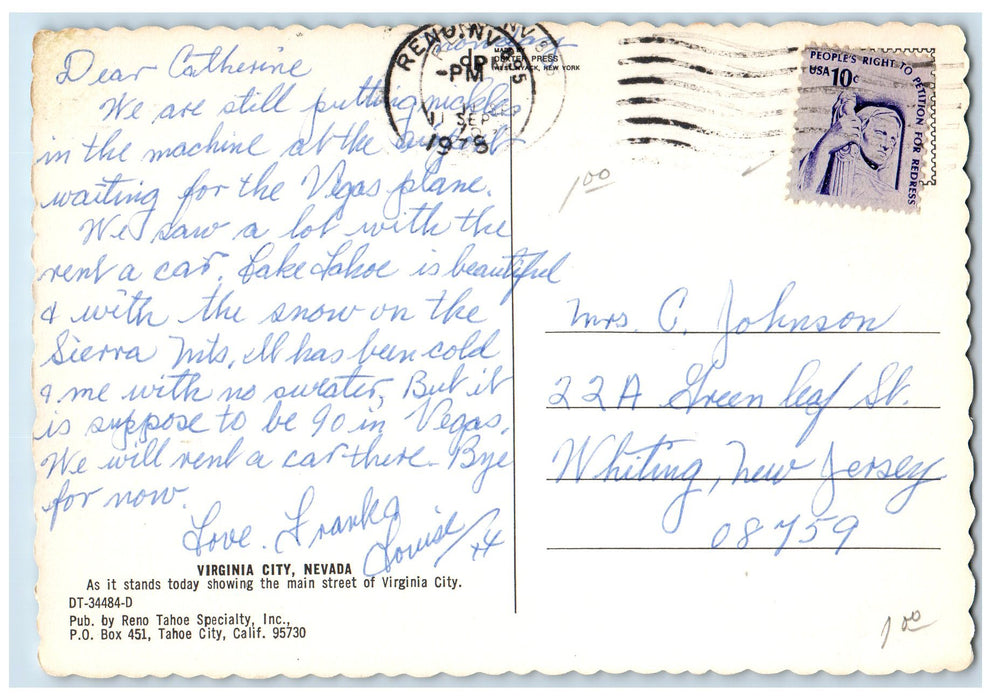 Monday
Dear Catherine
We are still putting nickles
in the machine at the airport
waiting for the Vegas plane.
We saw a lot with the
rent a car. Lake Tahoe is beautiful
& with the snow on the
Sierra Mts, It has been cold
& me with no sweater, But it
is suppose to be 90 in Vegas.
We will rent a car there - Bye
for now.
Love. Frank &
Louise
VIRGINIA CITY, NEVADA
As it stands today showing the main street of Virginia City.
DT-34484-D
Pub. by Reno Tahoe Specialty, Inc.,
P.O. Box 451, Tahoe City, Calif. 95730
MADE BY
DEXTER PRESS
WEST NYACK, NEW YORK
RENO, NV 895
PM
11 SEP
1978
PEOPLE'S RIGHT TO PETITION FOR REDRESS
USA 10c
1 00
Mrs. C. Johnson
22A Green leaf St.
Whiting, New Jersey
08759
1 00